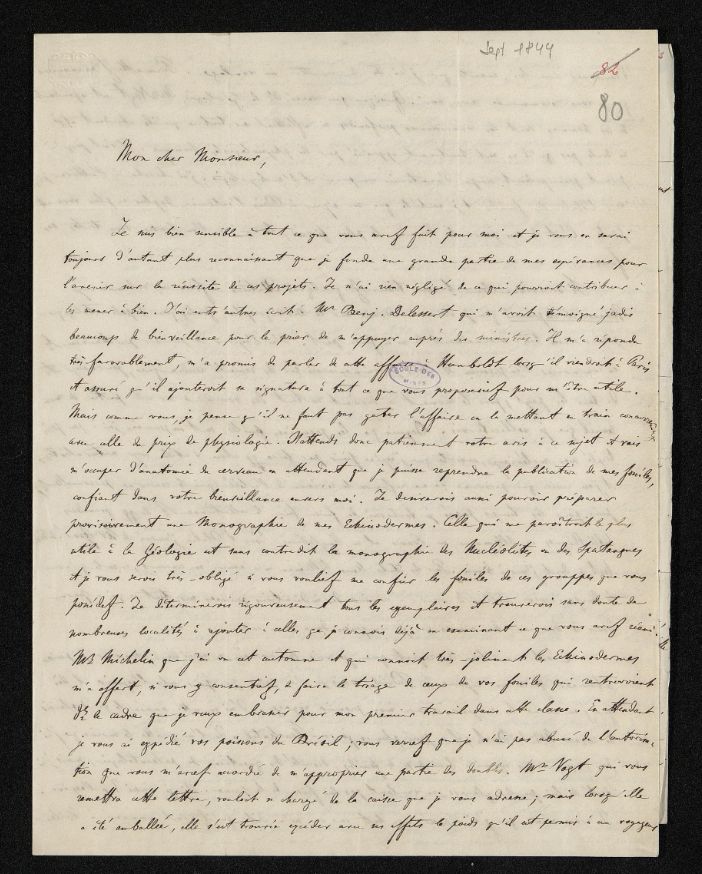 Sept 1844
82
80
Mon cher Monsieur,
Je suis bien sensible à tout ce que vous avez fait pour moi et je vous en serai
toujours d'autant plus reconnaissant que je fonde une grande partie de mes espérances pour
l'avenir sur la réussite de ces projets. Je n'ai rien négligé de ce qui pourrait contribuer à
les mener à bien. J'ai entr'autres écrit à Mr Benj. Delessert qui m'avoit témoigné jadis
beaucoup de bienveillance pour le prier de m'appuyer auprès des ministres. Il m'a répondu
très-favorablement, m'a promis de parler de cette affaire à Humboldt lorsqu'il viendroit à Paris
et assuré qu'il ajouteroit sa signature à tout ce que vous proposeriez pour m'être utile.
Mais comme vous, je pense qu'il ne faut pas gâter l'affaire en la mettant en train
avec celle du prix de physiologie. J'attends donc patiemment votre avis à ce sujet et vais
m'occuper d'anatomie du cerveau en attendant que je puisse reprendre la publication de mes fossiles,
confiant dans votre bienveillance envers moi. Je désirerois aussi pouvoir préparer
provisoirement une Monographie de mes Echinodermes. Celle qui me paroîtroit le plus
utile à la Géologie est sans contredit la monographie des Nucléolites ou des Spatangues
et je vous serois très-obligé si vous vouliez me confier les fossiles de ces grouppes que vous
possédez. Je déterminerois rigoureusement tous les exemplaires et trouverois sans doute de
nombreuses localités à ajouter à celles que je connois déjà en examinant ce que vous avez réuni.
Mr Michelin que j'ai vu cet automne et qui connoit très joliment les Echinodermes
m'a offert, si vous y consentez, de faire le triage de ceux de vos fossiles qui rentreroient
ds le cadre que je veux embrasser pour mon premier travail dans cette classe. En attendant
je vous ai expédié vos poissons du Brésil; vous verrez que je n'ai pas abusé de l'autorisa-
tion que vous m'avez accordée de m'approprier une partie des doubles. Mr Vogt qui vous
remettra cette lettre, vouloit se charger de la caisse que je vous adresse; mais lorsqu'elle
a été emballée, elle s'est trouvée excéder avec ses effets le poids qu'il est permis à un voyageur
ÉCOLE DES MINES